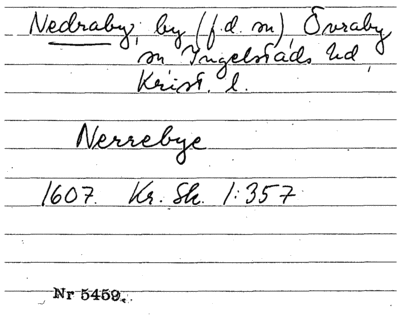 Nedraby, by (f.d. sn), Övraby
sn Ingelstads hd,
Krist. l.
Nerrebye
1607. Kr. Sk. 1:357
Nr 5459.